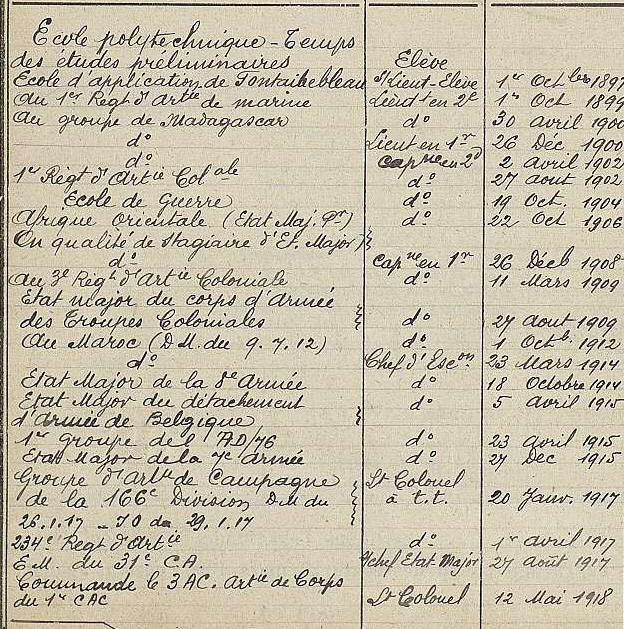 Ecole polytechnique - Temps
des études préliminaires Elève
Ecole d'application de Fontainebleau S/Lieut-Elève 1er Octbre 1897
au 1er Regt d'Artie de marine Lieut en 2e 1er Oct 1899
au groupe de Madagascar do 30 avril 1900
do Lieut en 1er 26 Déc 1900
do Capne en 2d 2 avril 1902
1er Régt d'Artie Colale do 27 aout 1902
Ecole de Guerre do 19 Oct. 1904
Afrique Orientale (Etat Maj. Pr) do 22 Oct 1906
En qualité de stagiaire d'Et. Major
do Capne en 1er 26 Décb 1908
au 3e Régt d'artie Coloniale do 11 Mars 1909
Etat major du corps d'armée
des Troupes Coloniales do 27 aout 1909
Au Maroc (D.M. du 9.7.12) do 1 Octb. 1912
do Chef d'Escon. 23 Mars 1914
Etat Major de la 8e armée do 18 Octobre 1914
Etat Major du détachement do 5 avril 1915
d'armée de Belgique
1er groupe de l'AD/76 do 23 avril 1915
Etat Major de la 7e armée do 27 Dec 1915
Groupe d'Artie de Campagne Lt Colonel
de la 166e Division D.M du à t.t. 20 Janv. 1917
26.1.17 - JO du 29.1.17
234e Regt d'Artie do 1er avril 1917
E.M. du 31e C.A. chef Etat Major 27 août 1917
Commande le 3 AC. Artie de Corps
du 1er CAC Lt Colonel 12 Mai 1918